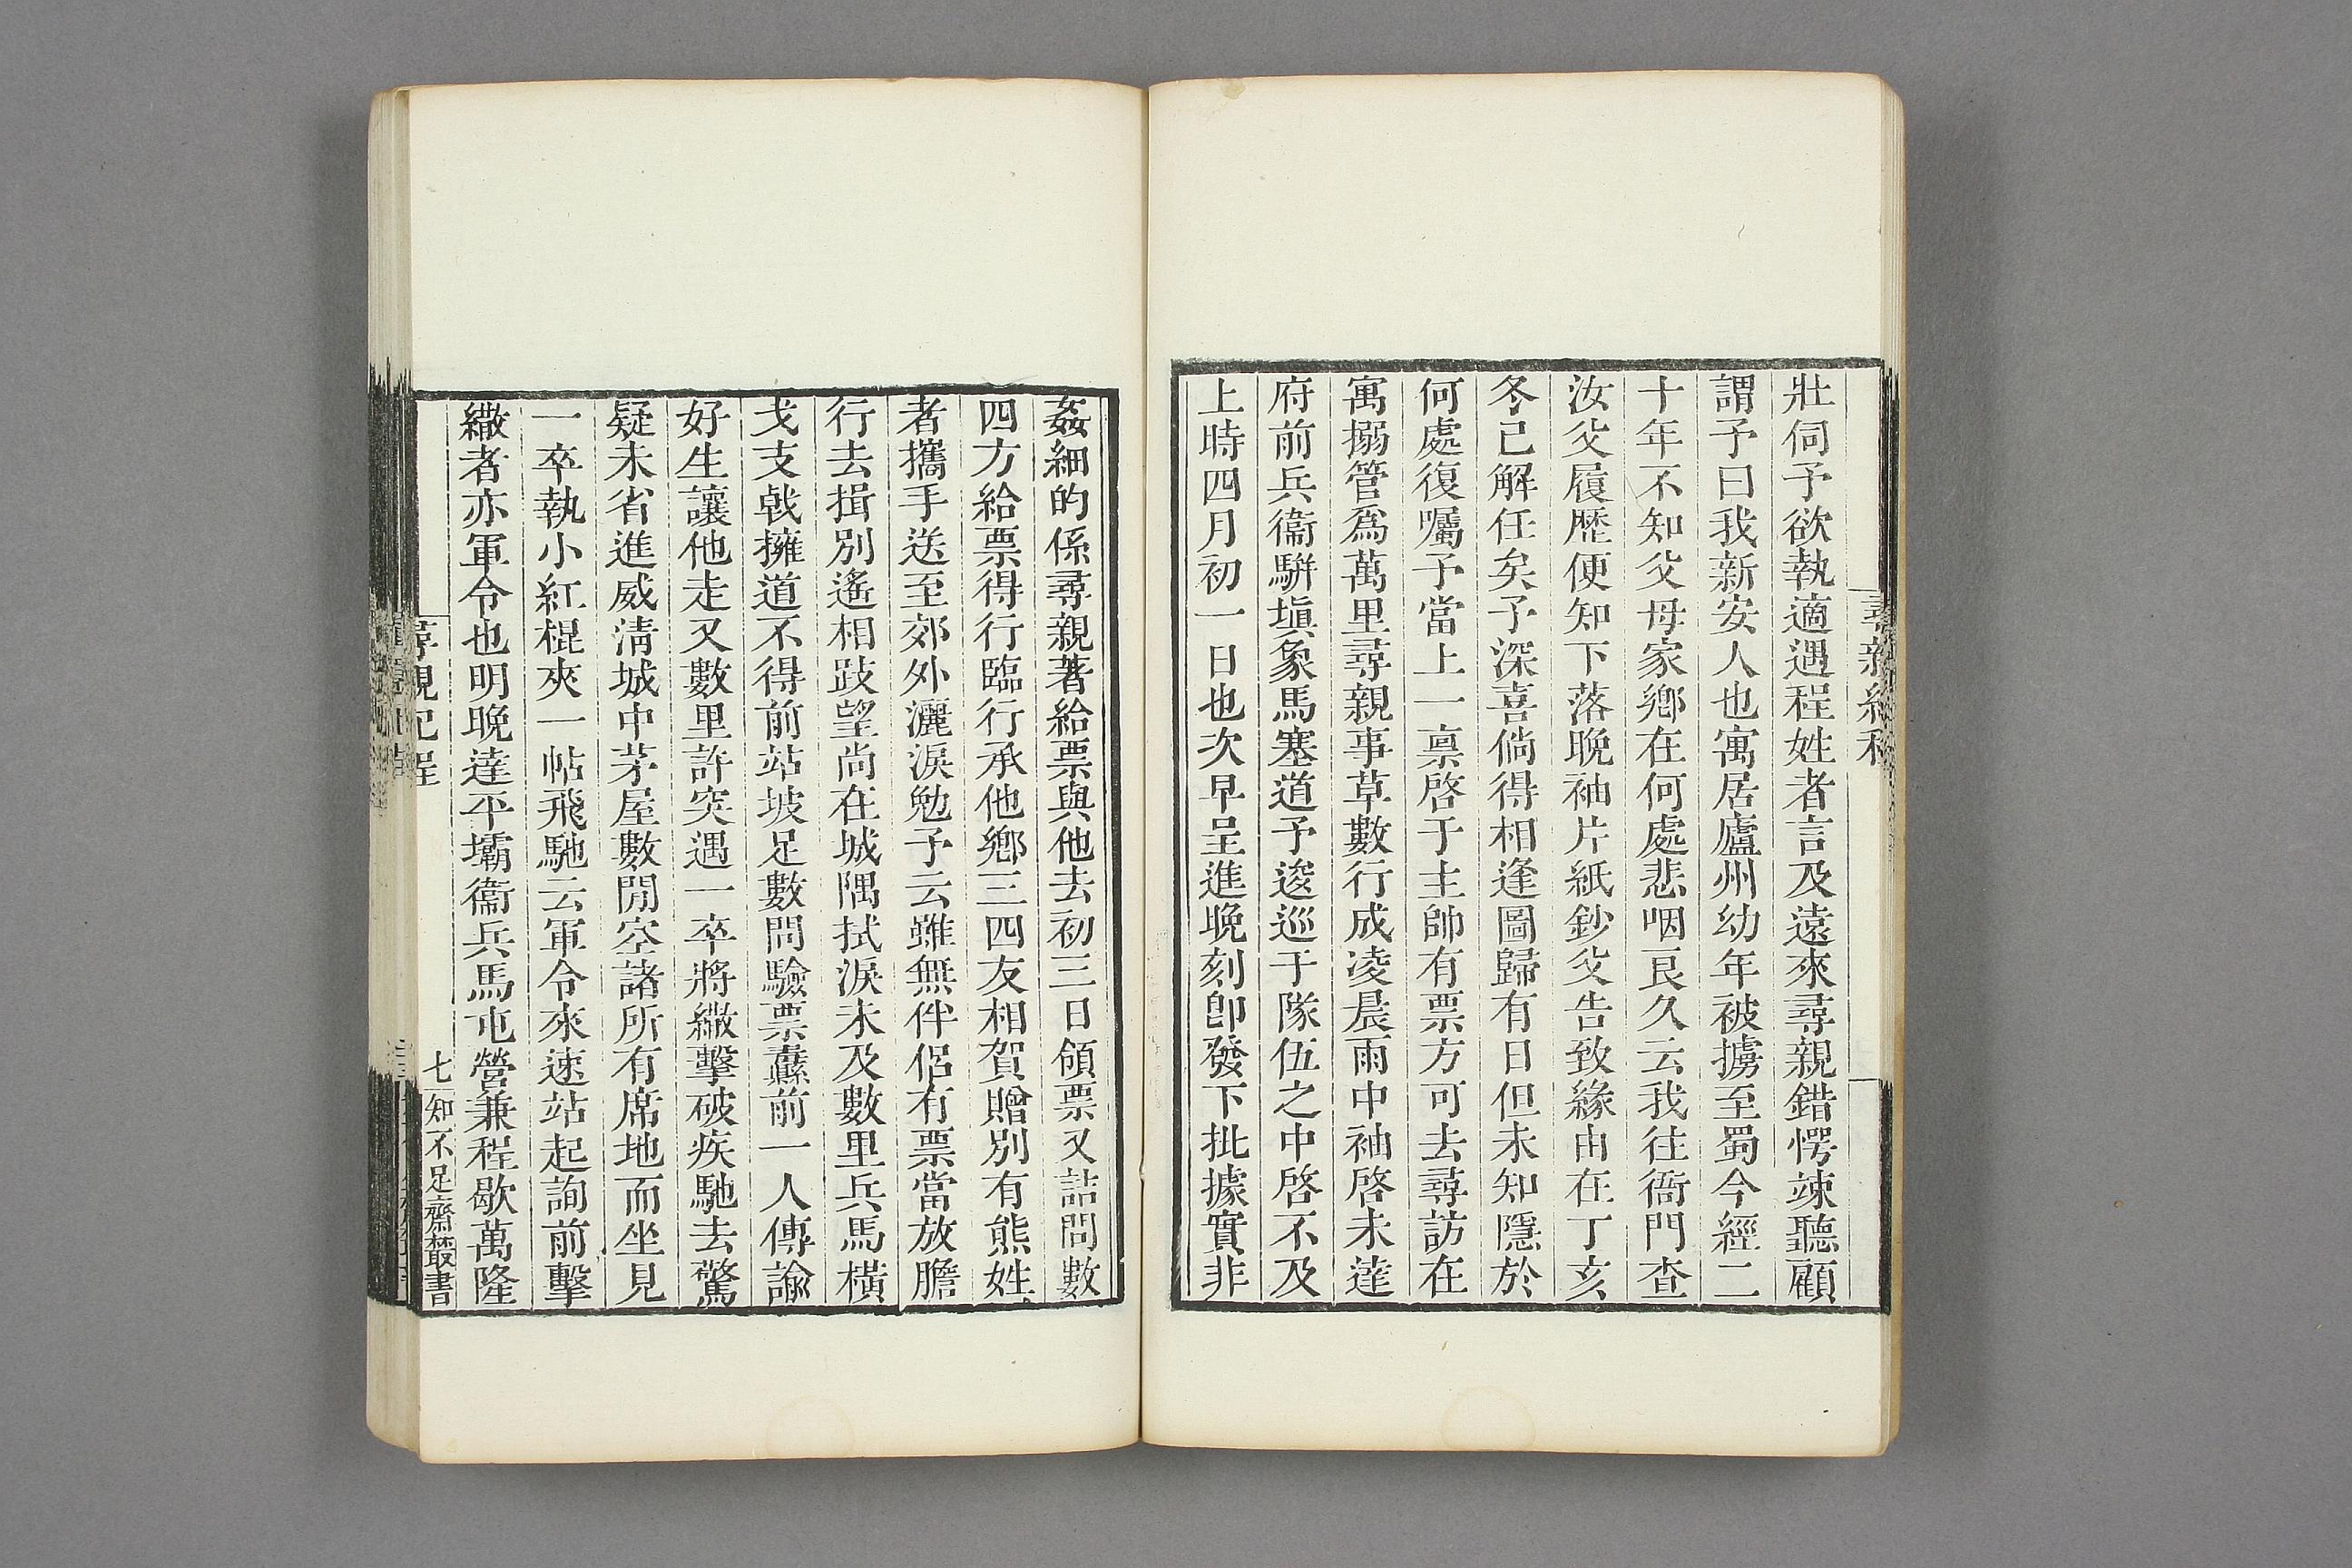 壯伺予欲執適遇程姓者言及遠來尋親錯愕竦聽顧
謂予曰我新安人也寓居廬州幼年被擄至蜀今經二
十年不知父母家鄉在何處悲咽良久云我往衙門查
汝父履歷便知下落晚袖片紙鈔父告致緣由在丁亥
冬已解任矣予深喜倘得相逢圖歸有日但未知隱於
何處復囑予當上一禀啓于主帥有票方可去尋訪在
寓搦管爲萬里尋親事草數行成凌晨雨中袖啓未達
府前兵衞騈塡象馬塞道予逡巡于隊伍之中啓不及
上時四月初一日也次早呈進晚刻卽發下批據實非
姦細的係尋親著給票與他去初三日領票又詰問數
四方給票得行臨行承他鄉三四友相賀贈別有熊姓
者攜手送至郊外灑淚勉予云雖無伴侶有票當放膽
行去揖別遙相跂望尚在城隅拭淚未及數里兵馬橫
戈支戟擁道不得前站坡足數問驗票纛前一人傳諭
好生讓他走又數里許突遇一卒將繖擊破疾馳去驚
疑未省進威淸城中茅屋數閒空諸所有席地而坐見
一卒執小紅棍夾一帖飛馳云軍令來速站起詢前擊
繖者亦軍令也明晚達平壩衞兵馬屯營兼程歇萬隆
尋親紀程
七
知不足齋叢書